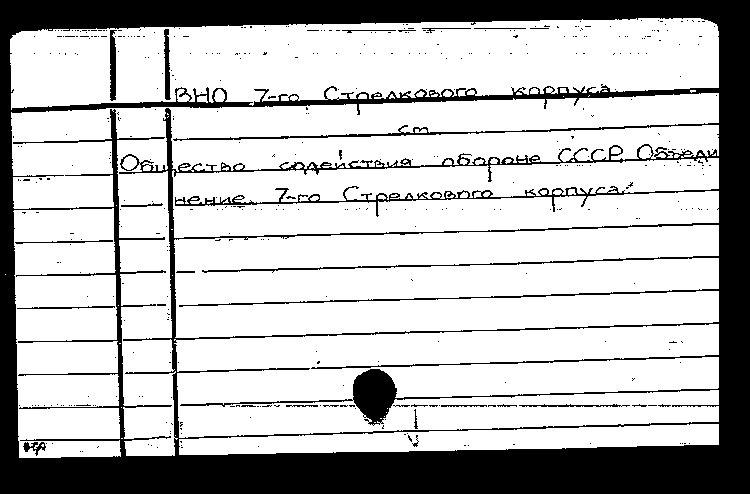 ВНО 7-го Стрелкового корпуса
см
Общество содействия обороне СССР. Объеди
нение 7-го Стрелкового корпуса.